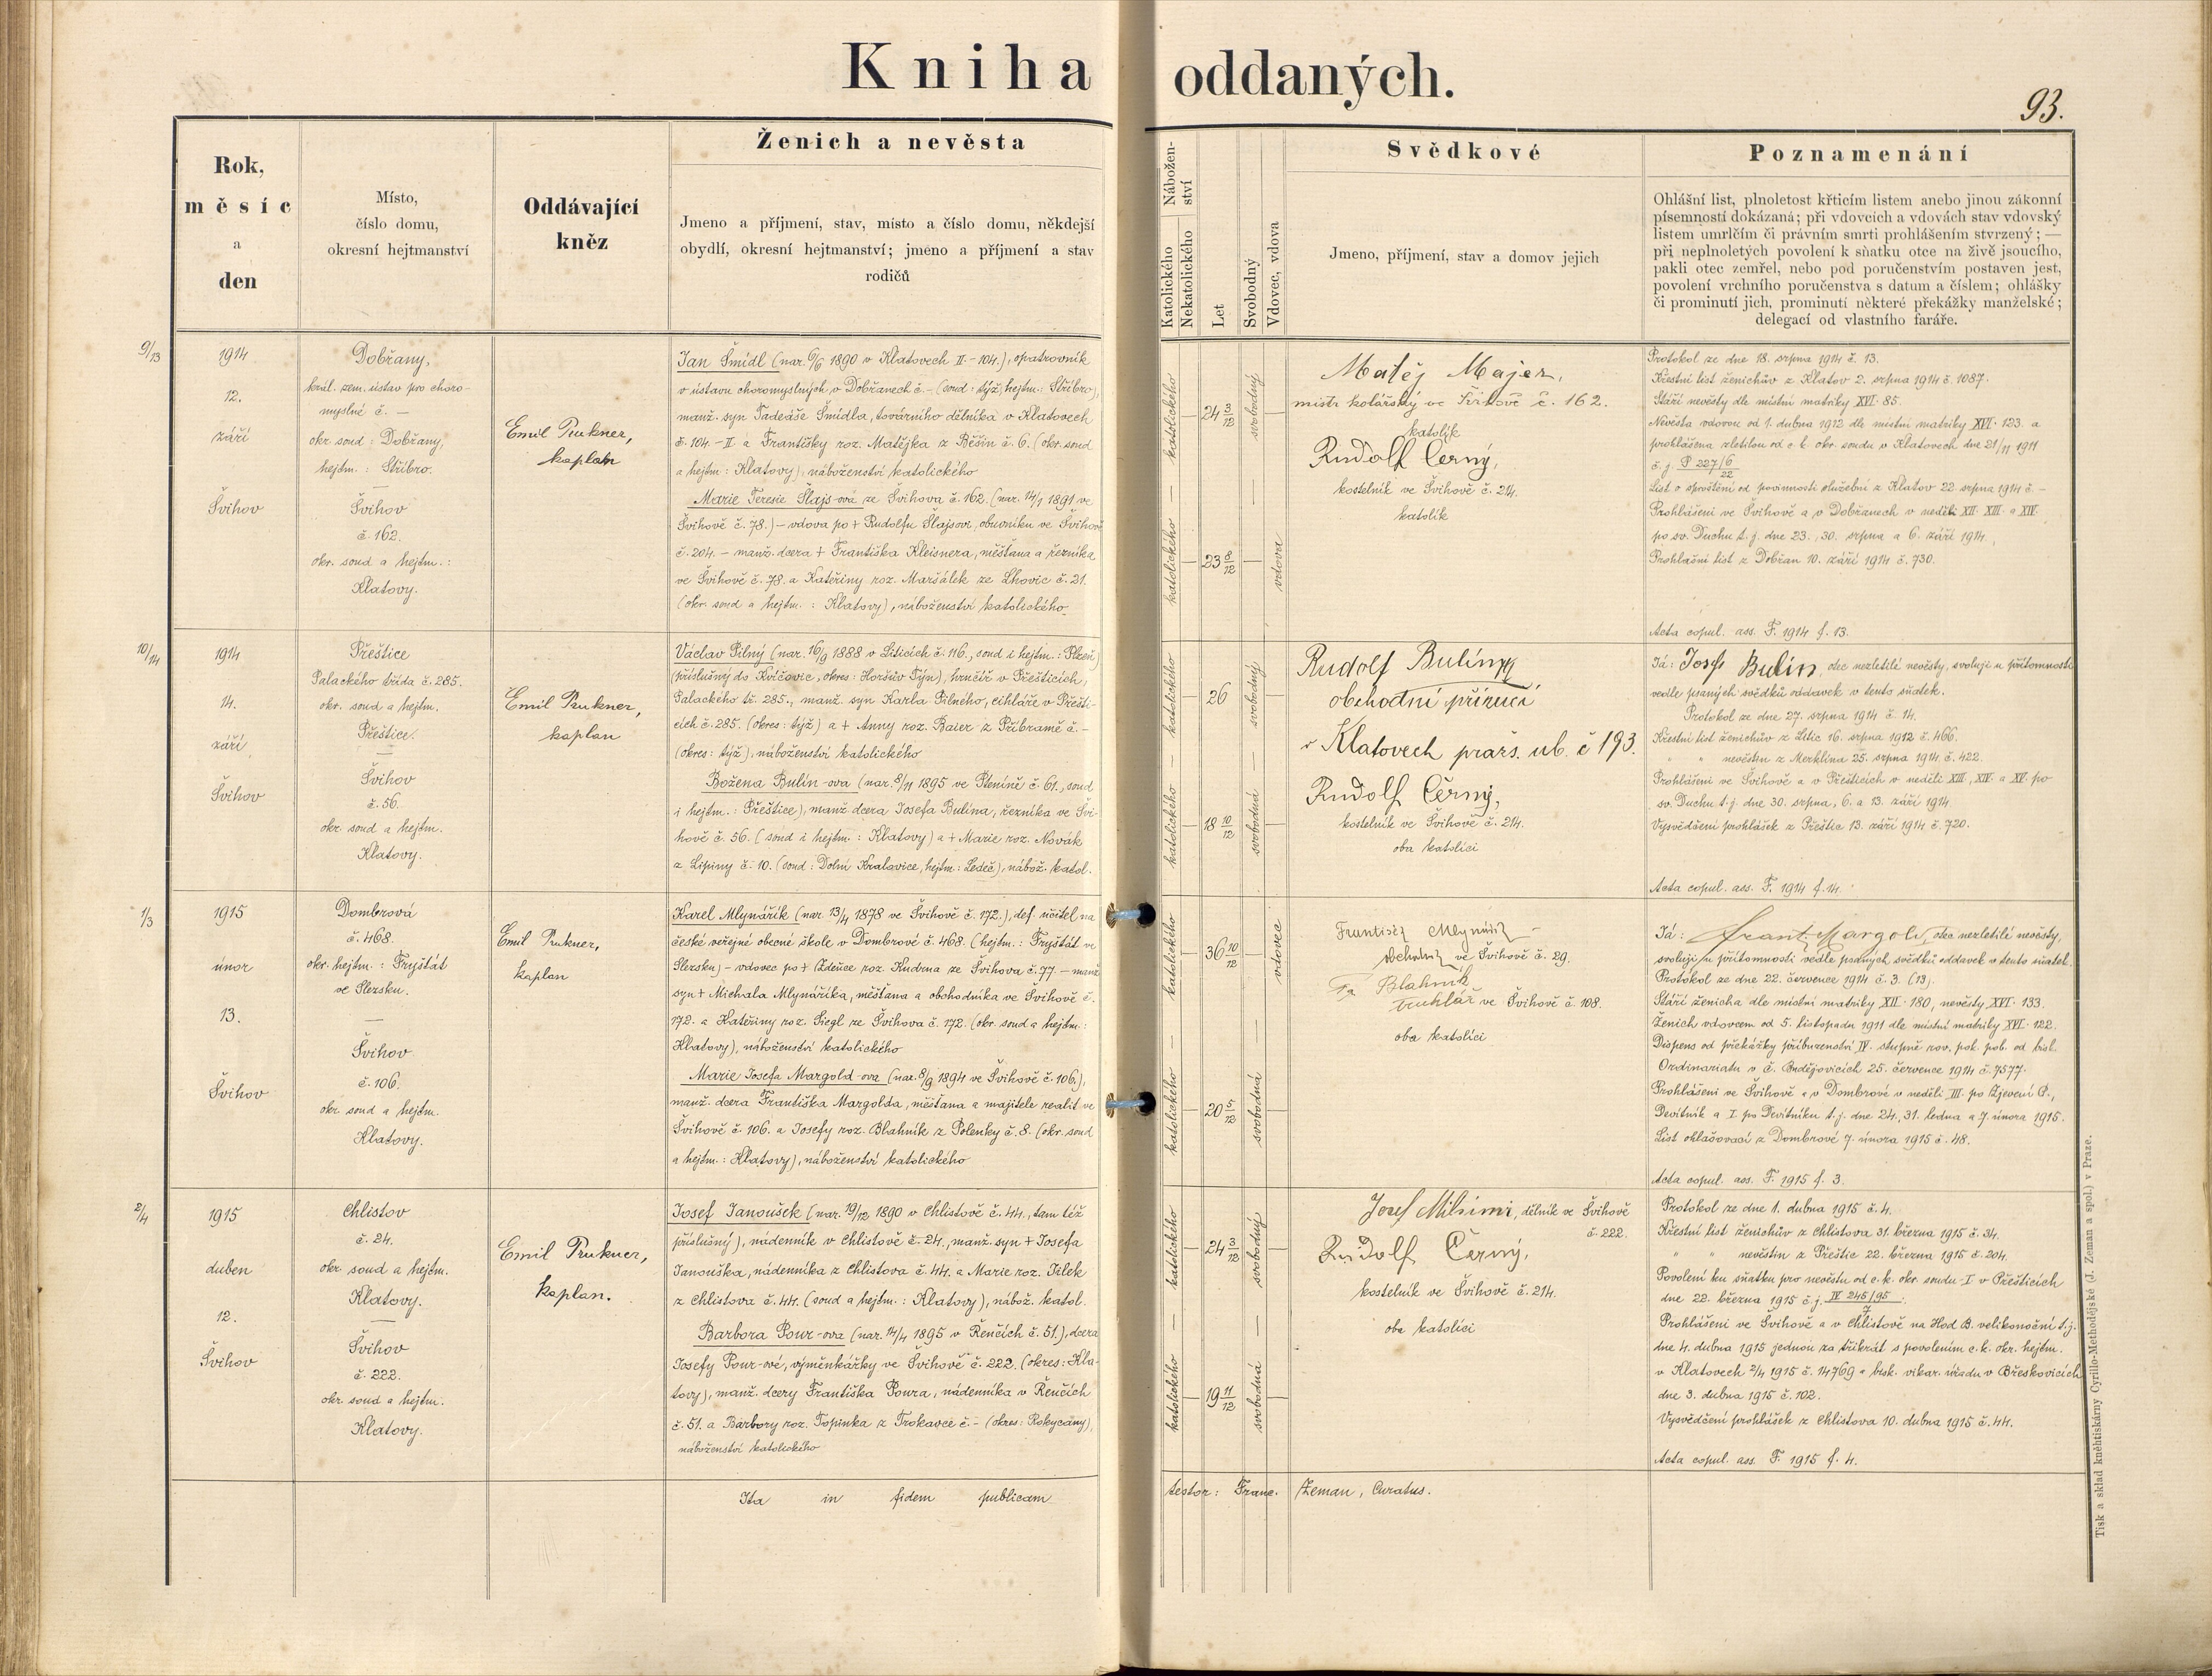 Kniha oddaných.
93.
Rok,
měsíc
a
den
Místo,
číslo domu,
okresní hejtmanství
Oddávající
kněz
Ženich a nevěsta
Jmeno a příjmení, stav, místo a číslo domu, někdejší
obydlí, okresní hejtmanství; jmeno a příjmení a stav
rodičů
Nábožen-
ství
Katolického
Nekatolického
Let
Svobodný
Vdovec, vdova
Svědkové
Jmeno, příjmení, stav a domov jejich
Poznamenání
Ohlášní list, plnoletost křticím listem anebo jinou zákonní
písemností dokázaná; při vdovcich a vdovách stav vdovský
listem umrlčím či právním smrti prohlášením stvrzený; —
při neplnoletých povolení k sňatku otce na živě jsoucího,
pakli otec zemřel, nebo pod poručenstvím postaven jest,
povolení vrchního poručenstva s datum a číslem; ohlášky
či prominutí jich, prominutí některé překážky manželské;
delegací od vlastního faráře.
9/13
1914
12.
září
Švihov
Dobřany,
král. zem. ústav pro choro-
myslné č. —
okr. soud: Dobřany,
hejtm.: Stříbro.
Švihov
č. 162.
okr. soud a hejtm.:
Klatovy.
Emil Prukner,
kaplan
Jan Šmidl (nar. 6/6 1890 v Klatovech II.-104.), opatrovník
v ústavu choromyslných v Dobřanech č. – (soud: týž, hejtm.: Stříbro),
manž. syn Tadeáše Šmidla, továrního dělníka v Klatovech
č. 104.-II a Františky roz. Matějka z Běšin č. 6. (okr. soud
a hejtm.: Klatovy), náboženství katolického
Marie Teresie Šlajs-ová ze Švihova č. 162. (nar. 14/1 1891 ve
Švihově č. 78.) – vdova po † Rudolfu Šlajsovi, obuvníku ve Švihově
č. 204. – manž. dcera † Františka Kleisnera, měšťana a řezníka
ve Švihově č. 78. a Kateřiny roz. Maršálek ze Lhovic č. 21.
(okr. soud a hejtm.: Klatovy), náboženství katolického
katolického
24 3/12
svobodný
katolického
23 8/12
vdova
Matěj Majer,
mistr kolářský ve Švihově č. 162.
katolík
Rudolf Černý,
kostelník ve Švihově č. 214.
katolík
Protokol ze dne 18. srpna 1914 č. 13.
Křestní list ženichův z Klatov 2. srpna 1914 č. 1087.
Stáří nevěsty dle místní matriky XVI. 85.
Nevěsta vdovou od 1. dubna 1912 dle místní matriky XVI. 123. a
prohlášena zletilou od c. k. okr. soudu v Klatovech dne 21/11 1911
č. j. P 227/6 22
List o sproštění od povinnosti služební z Klatov 22. srpna 1914 č. –
Prohlášeni ve Švihově a v Dobřanech v neděli XII. XIII. a XIV.
po sv. Duchu t. j. dne 23., 30. srpna a 6. září 1914.
Prohlašní list z Dobřan 10. září 1914 č. 730.
Acta copul. ass. F. 1914 f. 13.
10/14
1914
14.
září
Švihov
Přeštice
Palackého třída č. 285.
okr. soud a hejtm.
Přeštice.
Švihov
č. 56.
okr. soud a hejtm.
Klatovy.
Emil Prukner,
kaplan
Václav Pilný (nar. 16/9 1888 v Liticích č. 116., soud i hejtm.: Plzeň)
(příslušný do Kvíčovic, okres: Horšův Týn), hrnčíř v Přešticích,
Palackého tř. 285., manž. syn Karla Pilného, cihláře v Přešti-
cích č. 285. (okres: týž) a † Anny roz. Baier z Příbramě č. –
(okres: týž), náboženství katolického
Božena Bulín-ova (nar. 8/11 1895 ve Pteníně č. 61., soud
i hejtm.: Přeštice), manž. dcera Josefa Bulína, řezníka ve Švi-
hově č. 56. (soud i hejtm.: Klatovy) a † Marie roz. Novák
z Lipiny č. 10. (soud: Dolní Kralovice, hejtm.: Ledeč), nábož. katol.
katolického
26
svobodný
katolického
18 10/12
svobodná
Rudolf Bulín
obchodní příručí
v Klatovech praž. ub. č 193.
Rudolf Černý,
kostelník ve Švihově č. 214.
oba katolíci
Já: Josef Bulín, otec nezletilé nevěsty, svoluji u přítomnosti
vedle psaných svědků oddavek v tento sňatek.
Protokol ze dne 27. srpna 1914 č. 14.
Křestní list ženichův z Litic 16. srpna 1912 č. 466.
" " nevěstin z Merklína 25. srpna 1914 č. 422.
Prohlášeni ve Švihově a v Přešticích v neděli XIII., XIV. a XV. po
sv. Duchu t. j. dne 30. srpna, 6. a 13. září 1914
Vysvědčení prohlášek z Přeštic 13. září 1914 č. 720.
Acta copul. ass. F. 1914 f. 14.
1/3
1915
únor
13.
Švihov
Dombrová
č. 468.
okr. hejtm.: Fryštát
ve Slezsku.
Švihov
č. 106.
okr. soud a hejtm.
Klatovy.
Emil Prukner,
kaplan
Karel Mlynářík (nar. 13/4 1878 ve Švihově č. 172.), def. učitel na
české veřejné obecné škole v Dombrové č. 468. (hejtm.: Fryštát ve
Slezsku) – vdovec po † Zdeňce roz. Kudrna ze Švihova č. 77. – manž.
syn † Michala Mlynáříka, měšťana a obchodníka ve Švihově č.
172. a Kateřiny roz. Siegl ze Švihova č. 172. (okr. soud a hejtm.:
Klatovy), náboženství katolického
Marie Josefa Margold-ova (nar. 8/9 1894 ve Švihově č. 106.),
manž. dcera Františka Margolda, měšťana a majitele realit ve
Švihově č. 106. a Josefy roz. Blahník z Polenky č. 8. (okr. soud
a hejtm.: Klatovy), náboženství katolického
katolického
36 10/12
vdovec
katolického
20 5/12
svobodná
František Mlynářík
ve Švihově č. 29.
Blahník
truhlář ve Švihově č. 108.
oba katolíci
Já: Frant. Margold, otec nezletilé nevěsty,
svoluji u přítomnosti vedle psaných svědků oddavek v tento sňatek.
Protokol ze dne 22. července 1914 č. 3. (13).
Stáří ženicha dle místní matriky XII. 180, nevěsty XVI. 133.
Ženich vdovcem od 5. listopadu 1911 dle místní matriky XVI. 122.
Dispens od překážky příbuzenství IV. stupně rov. pok. pob. od bisk.
Ordinariatu v č. Budějovicích 25. července 1914 č. 7577.
Prohlášeni ve Švihově a v Dombrové v neděli III. po Zjevení P.,
Devítník a I. po Devítníku t. j. dne 24., 31. ledna a 7. února 1915.
List ohlašovací z Dombrové 7. února 1915 č. 48.
Acta copul. ass. F. 1915 f. 3.
2/4
1915
duben
12.
Švihov
Chlistov
č. 24.
okr. soud a hejtm.
Klatovy.
Švihov
č. 222.
okr. soud a hejtm.
Klatovy.
Emil Prukner,
kaplan.
Josef Janoušek (nar. 19/12 1890 v Chlistově č. 44., tam též
příslušný), nádenník v Chlistově č. 24., manž. syn † Josefa
Janouška, nádenníka z Chlistova č. 44. a Marie roz. Jílek
z Chlistova č. 44. (soud a hejtm.: Klatovy), nábož. katol.
Barbora Pour-ova (nar. 14/4 1895 v Řenčích č. 51.), dcera
Josefy Pour-ové, výměnkářky ve Švihově č. 222. (okres: Kla-
tovy), manž. dcery Františka Poura, nádenníka v Řenčích
č. 51. a Barbory roz. Topinka z Trokavce č. – (okres: Rokycany),
náboženství katolického
katolického
24 3/12
svobodný
katolického
19 11/12
svobodná
Josef Milsimr, dělník ve Švihově
č. 222.
Rudolf Černý,
kostelník ve Švihově č. 214.
oba katolíci
Protokol ze dne 1. dubna 1915 č. 4.
Křestní list ženichův z Chlistova 31. března 1915 č. 34.
" " nevěstin z Přeštic 22. března 1915 č. 204.
Povolení ku sňatku pro nevěstu od c. k. okr. soudu I v Přešticích
dne 22. března 1915 č. j. IV 245/95 7
Prohlášeni ve Švihově a v Chlistově na Hod B. velikonoční t. j.
dne 4. dubna 1915 jednou za třikrát s povolením c. k. okr. hejtm.
v Klatovech 2/4 1915 č. 14769 a bisk. vikar. úřadu v Břeskovicích
dne 3. dubna 1915 č. 102.
Vysvědčení prohlášek z Chlistova 10. dubna 1915 č. 44.
Acta copul. ass. F. 1915 f. 4.
Ita in fidem publicam testor: Franc. Zeman, Curatus.
Tisk a sklad kněhtiskárny Cyrillo-Methodějské (J. Zeman a spol.) v Praze.